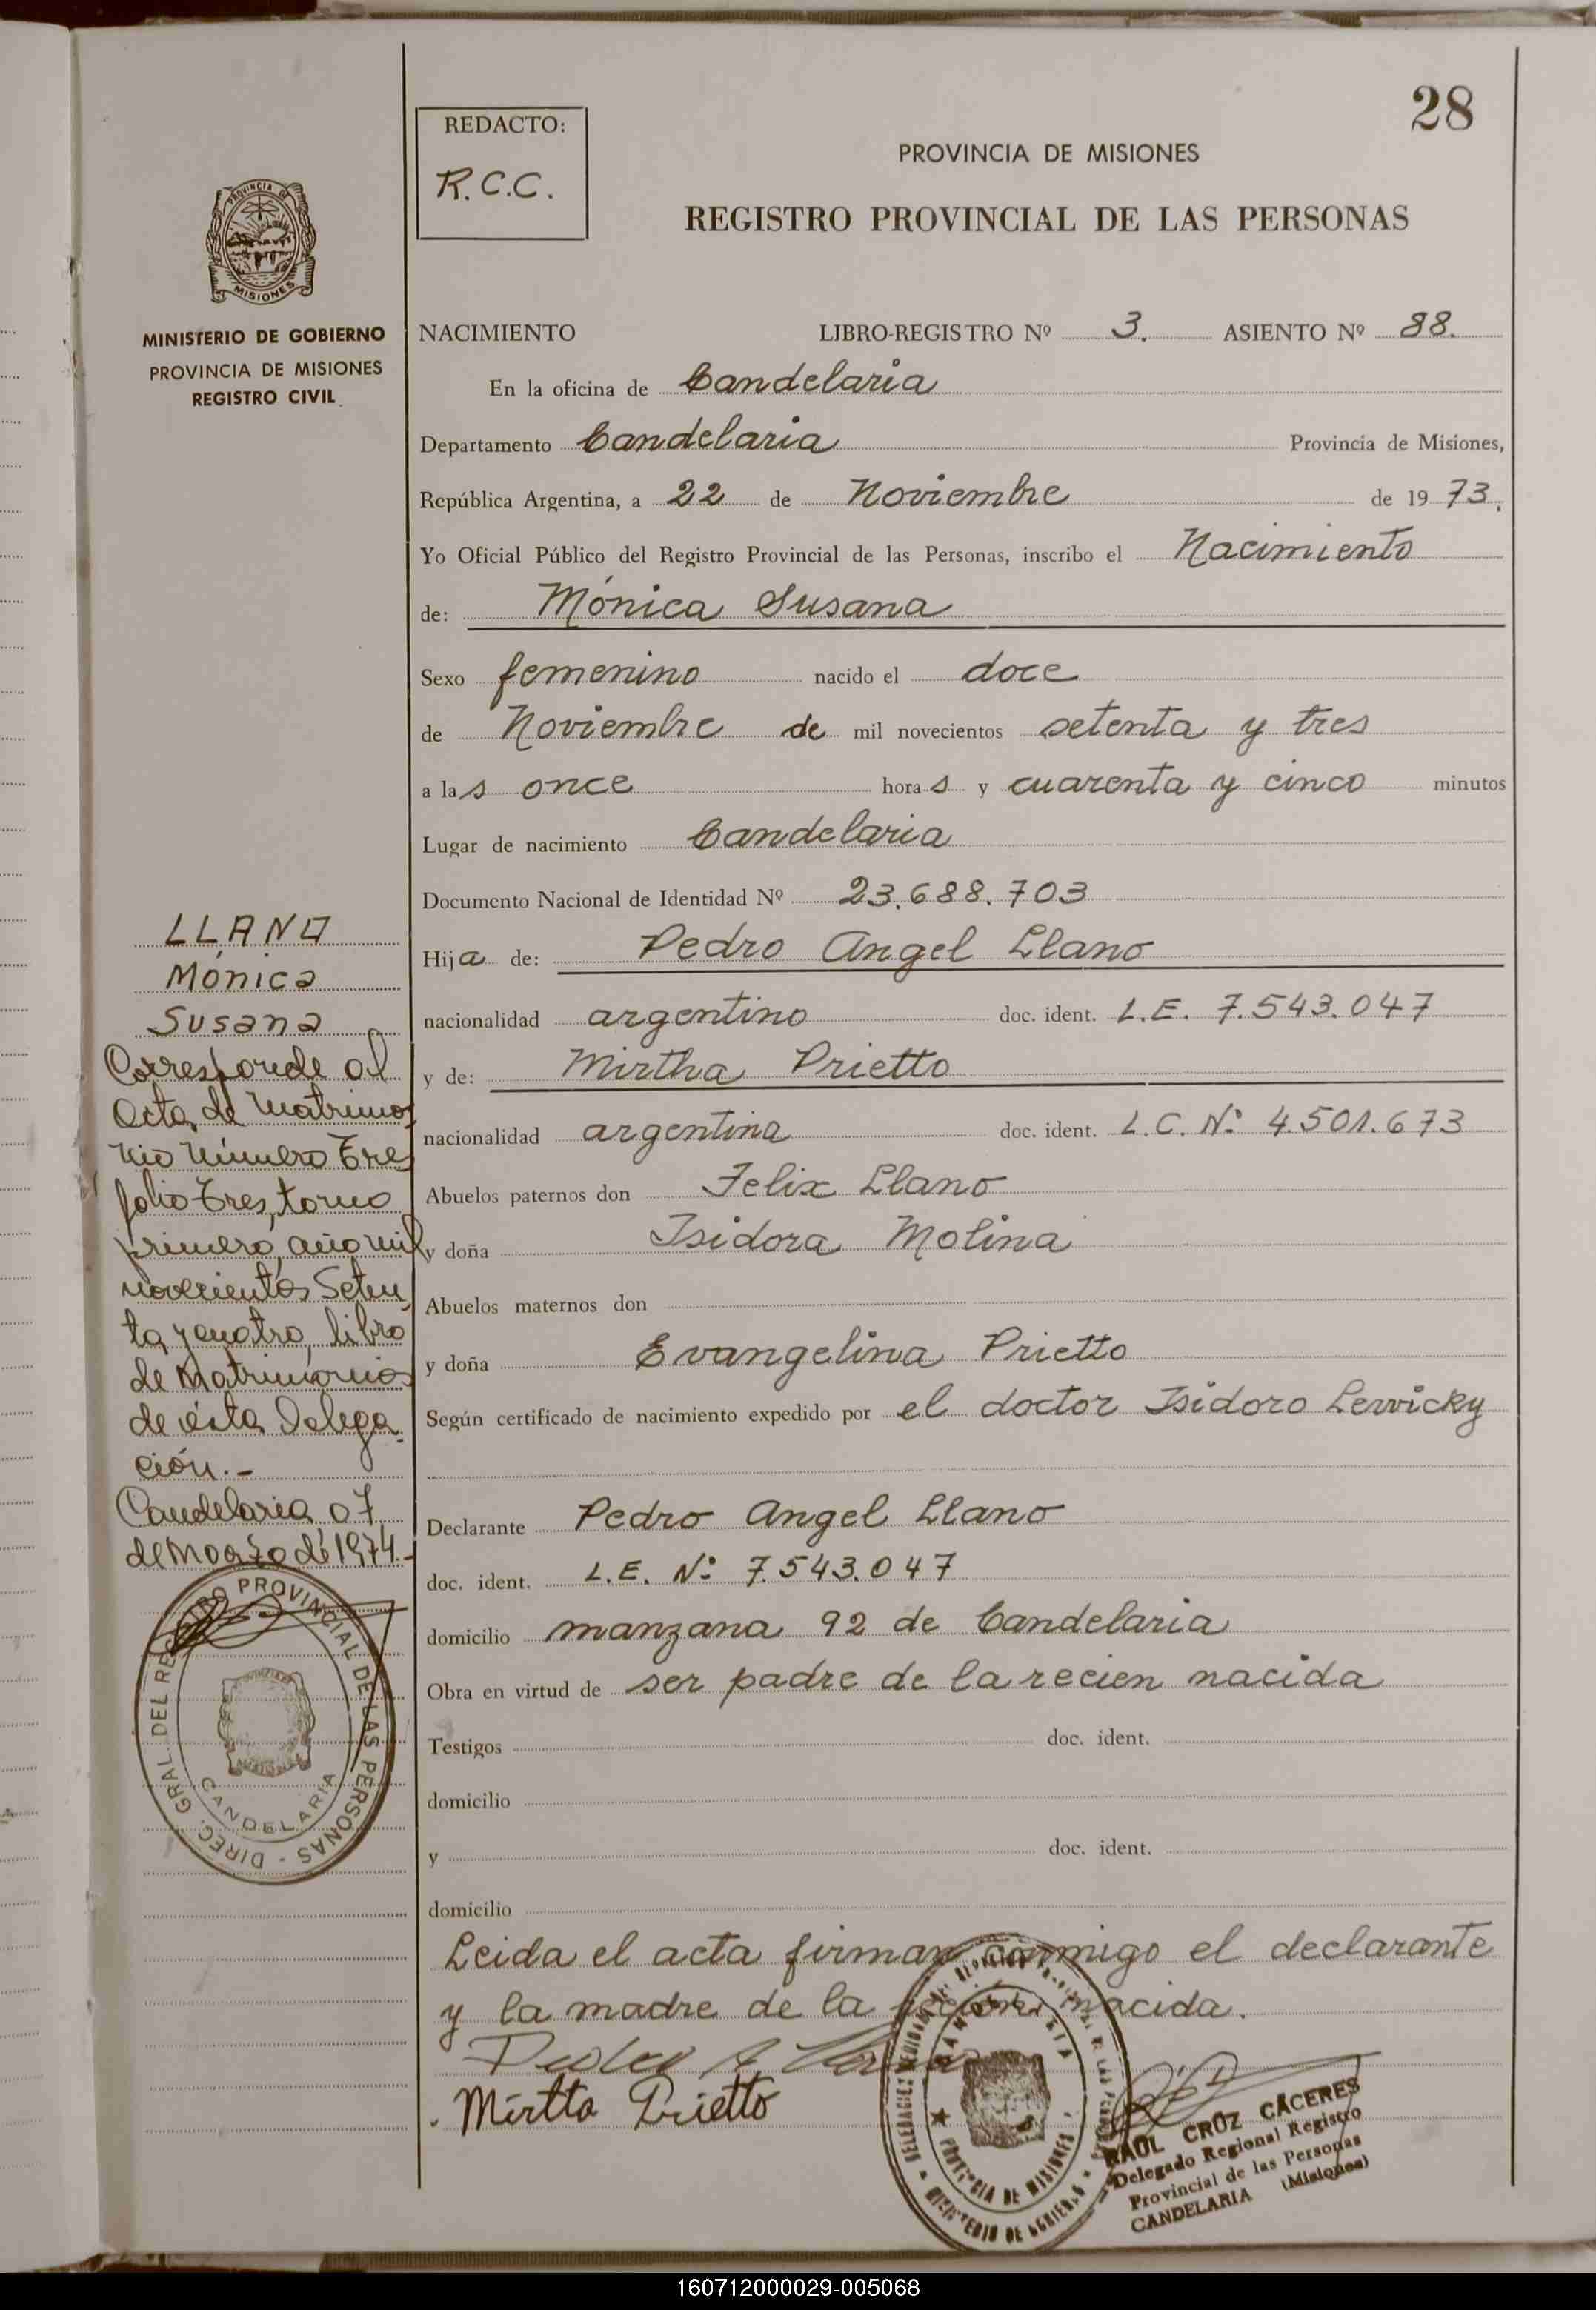 28
REDACTO:
R.C.C.
PROVINCIA DE MISIONES
REGISTRO PROVINCIAL DE LAS PERSONAS
PROVINCIA DE
MISIONES
MINISTERIO DE GOBIERNO
PROVINCIA DE MISIONES
REGISTRO CIVIL
NACIMIENTO LIBRO-REGISTRO Nº 3. ASIENTO Nº 88.
En la oficina de Candelaria
Departamento Candelaria Provincia de Misiones,
República Argentina, a 22 de Noviembre de 19 73.
Yo Oficial Público del Registro Provincial de las Personas, inscribo el Nacimiento
de: Mónica Susana
Sexo femenino nacido el doce
de Noviembre de mil novecientos setenta y tres
a las once horas y cuarenta y cinco minutos
Lugar de nacimiento Candelaria
Documento Nacional de Identidad Nº 23.688.703
Hija de: Pedro Angel Llano
nacionalidad argentino doc. ident. L.E. 7.543.047
y de: Mirtha Prietto
nacionalidad argentina doc. ident. L.C. Nº 4.501.673
Abuelos paternos don Felix Llano
y doña Isidora Molina
Abuelos maternos don
y doña Evangelina Prietto
Según certificado de nacimiento expedido por el doctor Isidoro Lewicky
Declarante Pedro Angel Llano
doc. ident. L.E. Nº 7.543.047
domicilio manzana 92 de Candelaria
Obra en virtud de ser padre de la recien nacida
Testigos doc. ident.
domicilio
y doc. ident.
domicilio
Leida el acta firman conmigo el declarante
y la madre de la recién nacida.
Mirtta Prietto
LLANO
Mónica
Susana
Corresponde al
Acta de Matrimo
nio Número Tres
folio Tres, tomo
primero, año mil
novecientos Seten
ta y cuatro, libro
de Matrimonios
de ésta Delega
ción.-
Candelaria 07
de marzo de 1974.-
DIREC. GRAL. DEL REGISTRO PROVINCIAL DE LAS PERSONAS -
CANDELARIA
PROVINCIA DE MISIONES
RAUL CRUZ CACERES
Delegado Regional Registro
Provincial de las Personas
CANDELARIA (Misiones)
160712000029-005068